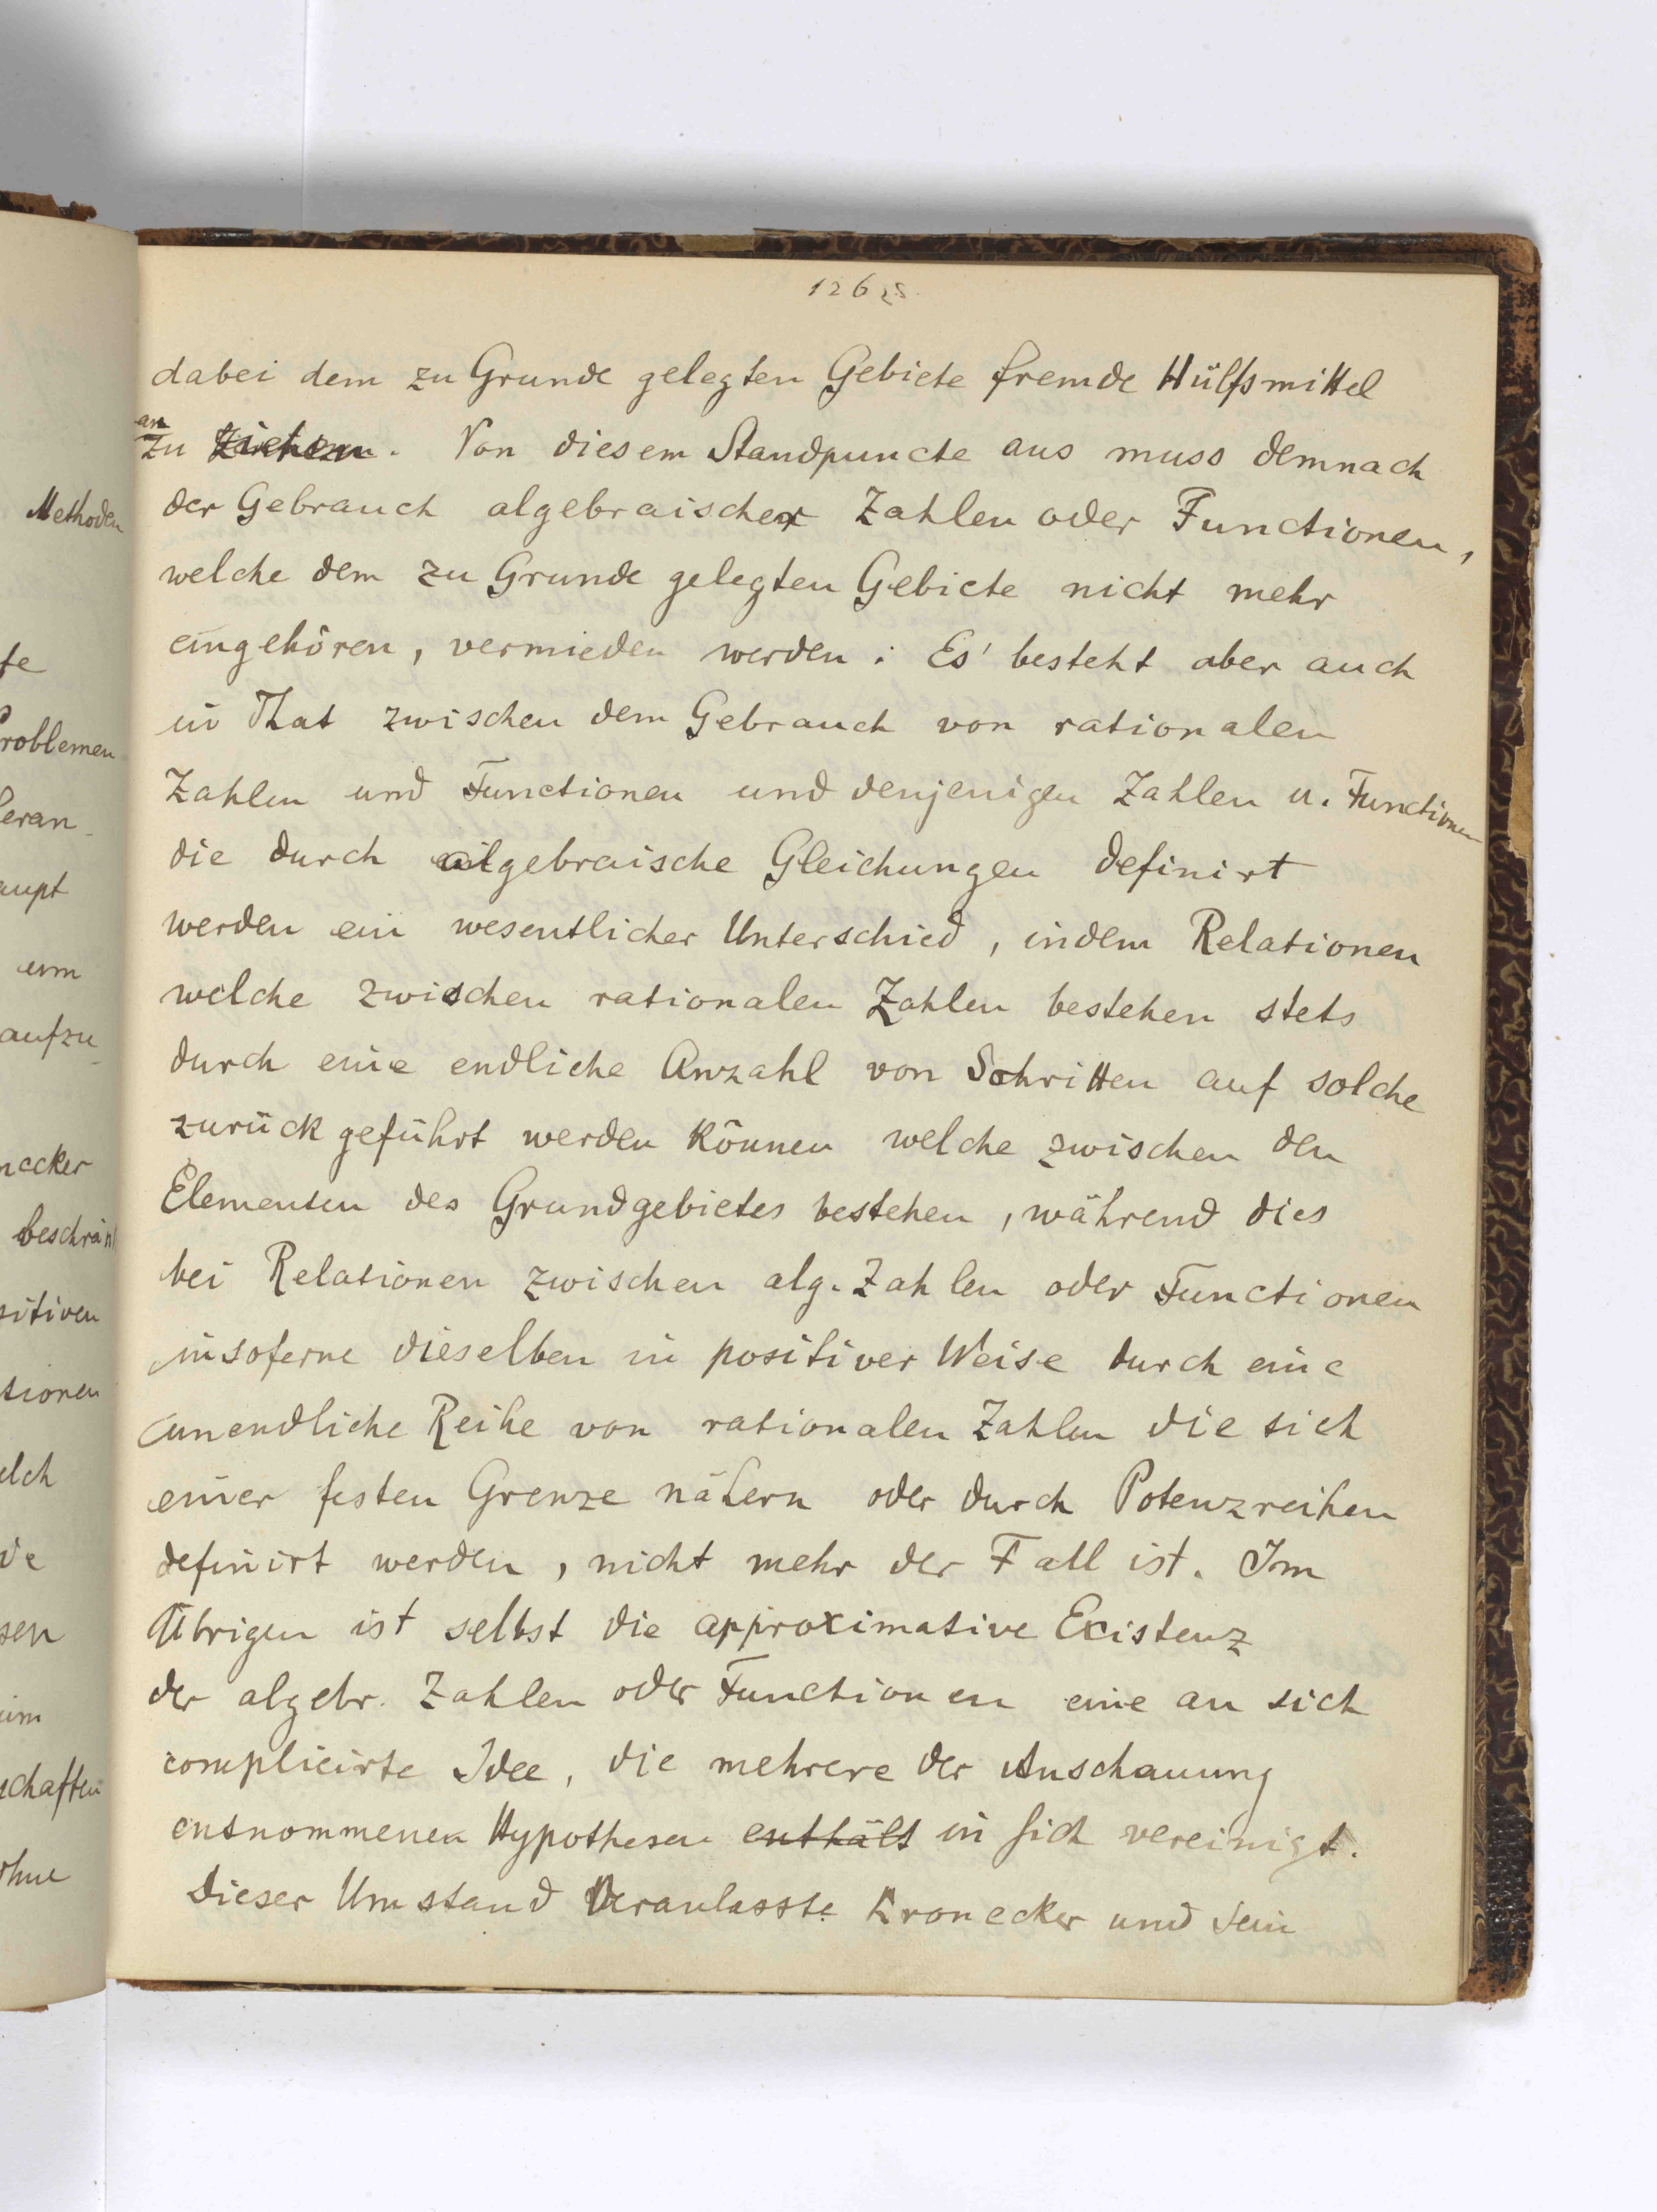 Methoden
te
roblemen
eran-
aupt
um
aufzu-
necker
beschrän
sitiven
tionen
elch
de
sen
im
schaften
ohne
126
dabei dem zu Grunde gelegten Gebiete fremde Hülfsmittel
an
zu ziehen. Von diesem Standpuncte aus muss demnach
der Gebrauch algebraischer Zahlen oder Functionen,
welche dem zu Grunde gelegten Gebiete nicht mehr
eingehören, vermieden werden. Es besteht aber auch
in That zwischen dem Gebrauch von rationalen
Zahlen und Functionen und denjenigen Zahlen u. Functionen
die durch algebraische Gleichungen definirt
werden ein wesentlicher Unterschied, indem Relationen
welche zwischen rationalen Zahlen bestehen stets
durch eine endliche Anzahl von Schritten auf solche
zurückgeführt werden können welche zwischen den
Elementen des Grundgebietes bestehen, während dies
bei Relationen zwischen alg. Zahlen oder Functionen
insoferne dieselben in positiver Weise durch eine
unendliche Reihe von rationalen Zahlen die sich
einer festen Grenze nähern oder durch Potenzreihen
definirt werden, nicht mehr der Fall ist. Im
Übrigen ist selbst die approximative Existenz
der algebr. Zahlen oder Functionen eine an sich
complicirte Idee, die mehrere der Anschauung
entnommenen Hypothesen enthält in sich vereinigt.
Dieser Umstand veranlasste Kronecker und sein